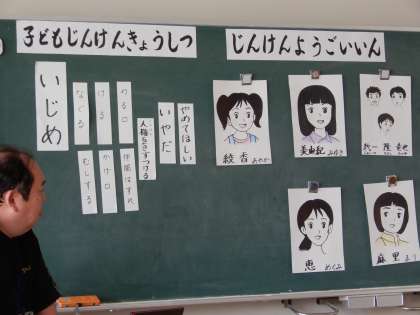 子どもじんけんきょうしつ
じんけんようごいいん
いじめ
なぐる
ける
わる口
むしする
かげ口
仲間はずれ
人権をきずつける
いやだ
やめてほしい
綾香 あやか
美由紀 みゆき
恵 めぐみ
麻里 まり